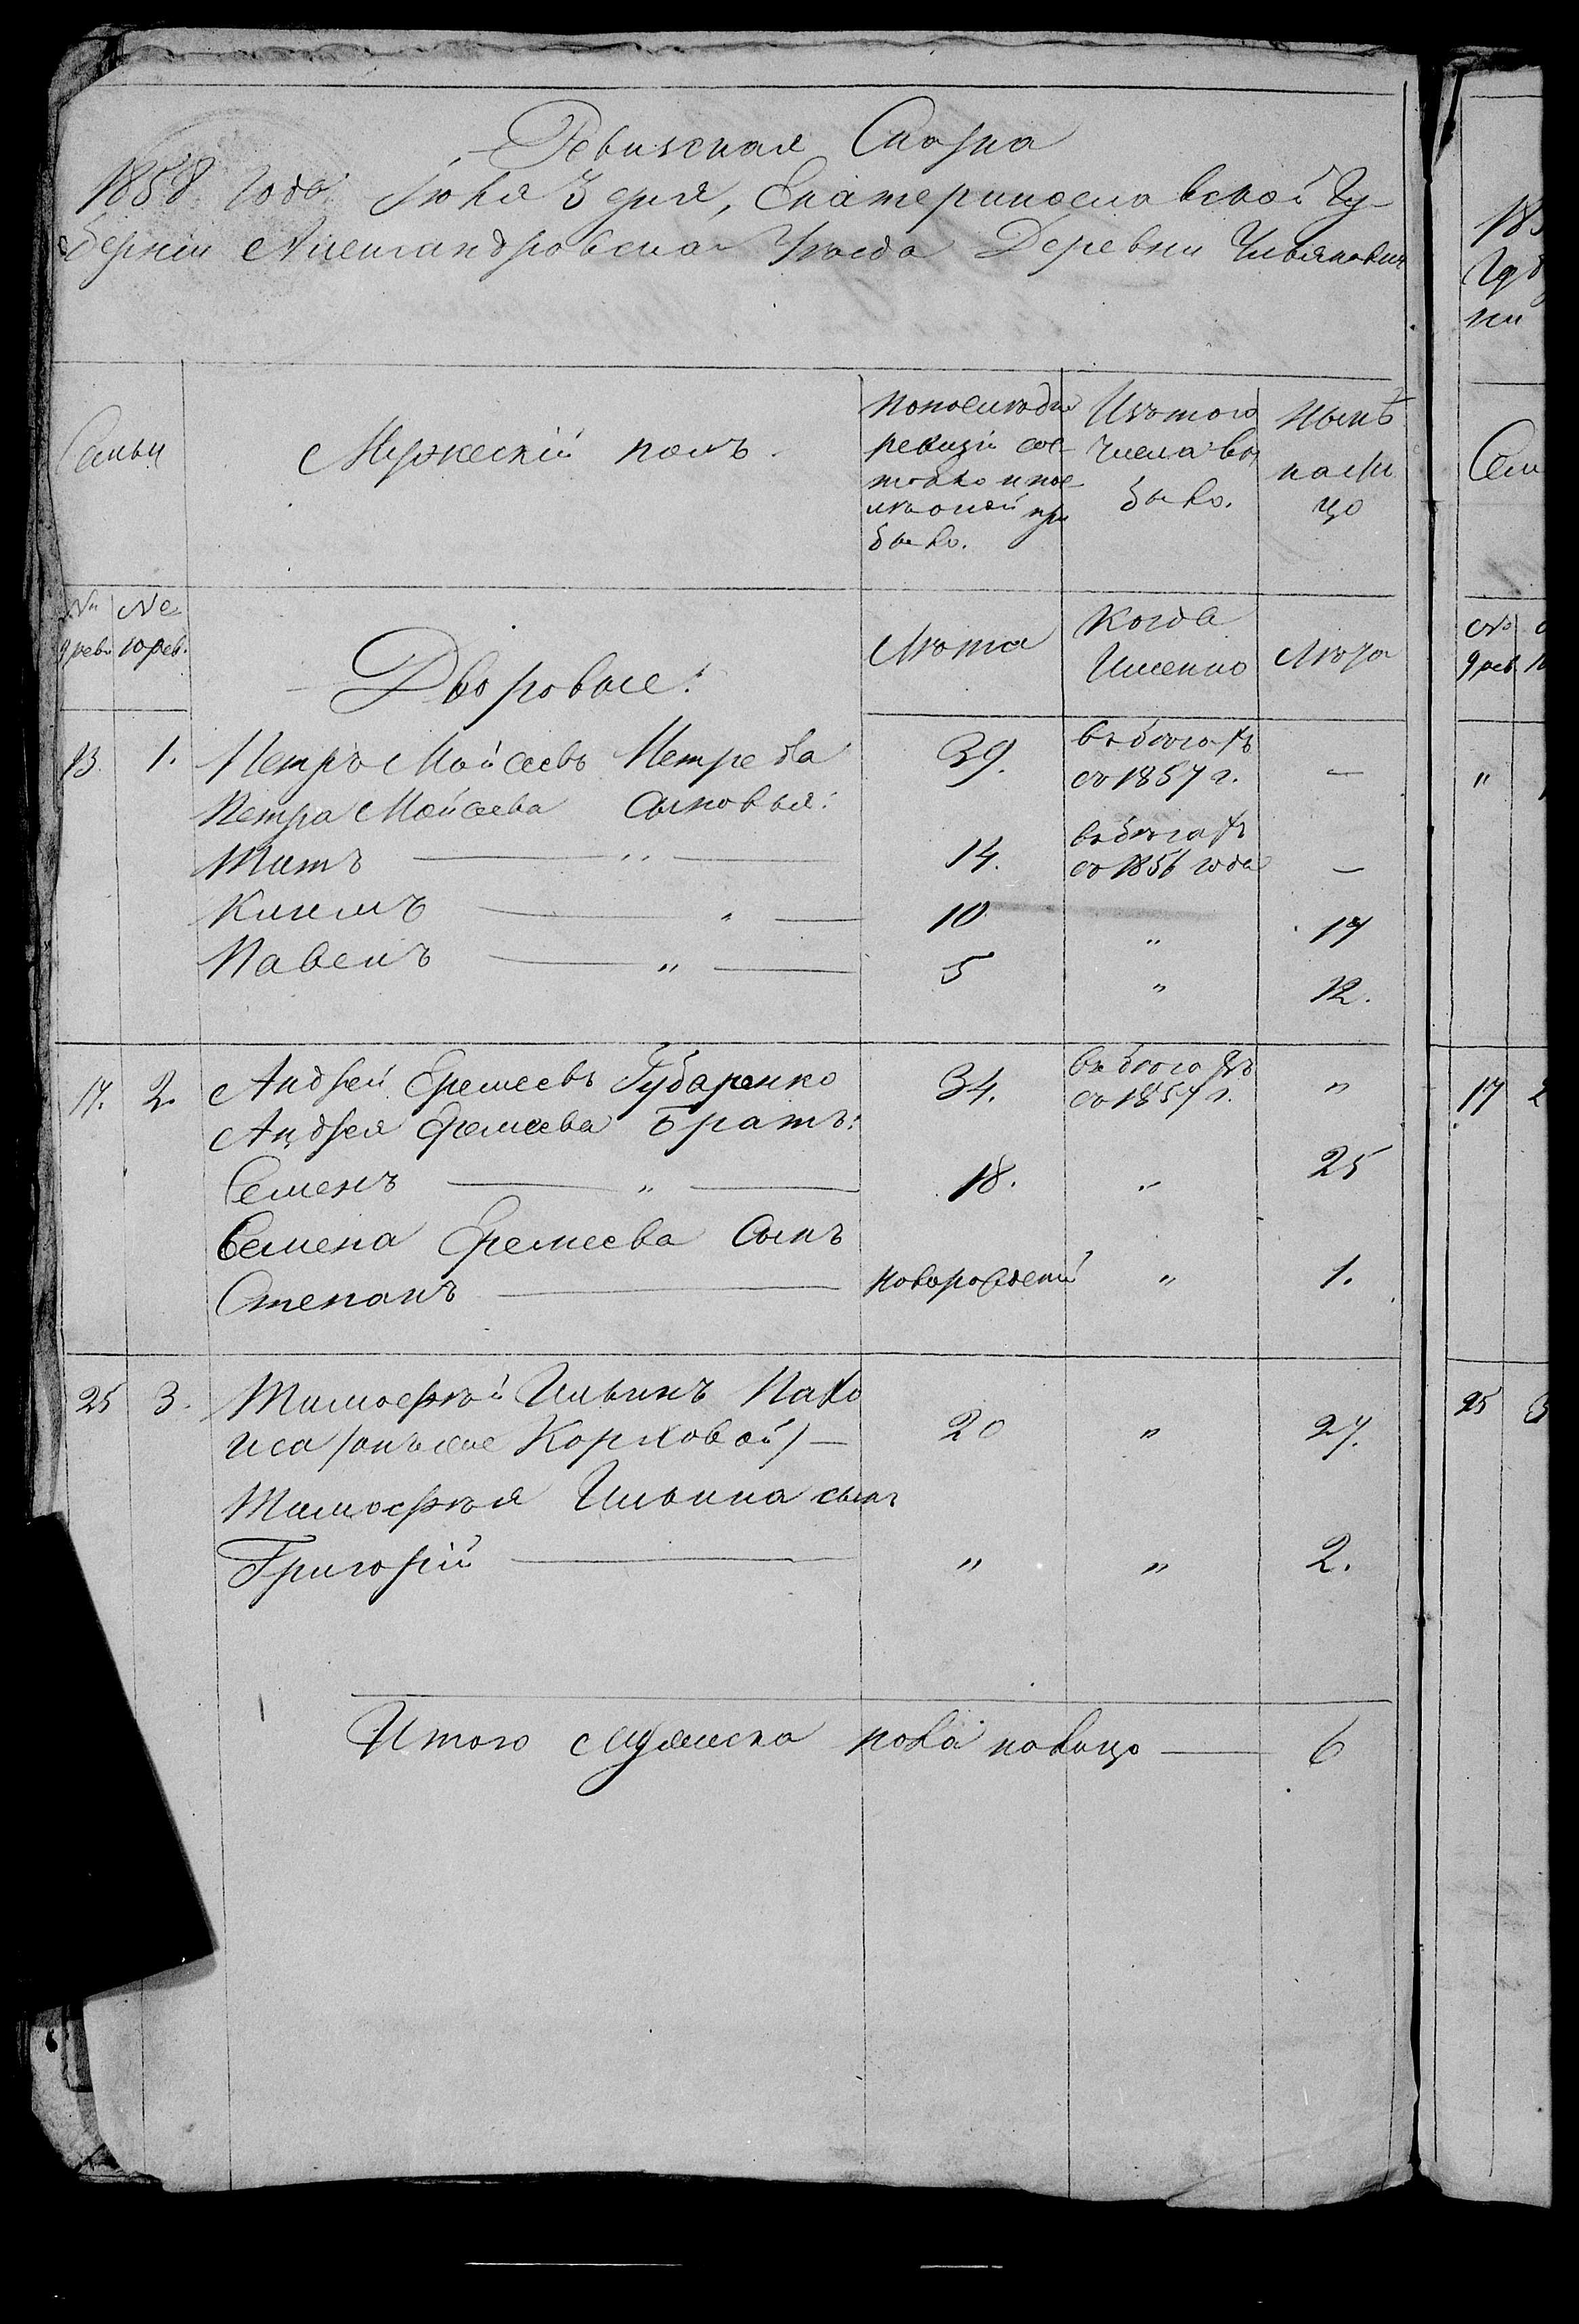 Ревизская Сказка
1858 года Іюня 3 дня, Екатеринославской Гу-
берніи Александровскаго Уѣзда Деревни
Семьи
Мужескій полъ.
по последней
ревизіи сос-
тояло и пос-
лѣ оной при
было.
Изъ того
числа вы
было.
Нынѣ
на ли
цо
№ 9 рев.
№ 10 рев.
Дворовые:
Лѣта
Когда
Именно
Лѣта
13. 1. Петръ Мойсеевъ 39. въ бѣгахъ
съ 1857 г. —
Петра Мойсеева Сыновья:
Титъ — „ — 14. въ бѣгахъ
съ 1856 года —
Климъ — „ — 10 „ 17
Павелъ — „ — 5 „ 12.
17. 2. Андрей Еремеевъ Губаренко 34. въ бѣгахъ
съ 1857 г. „
Андрея Еремеева Братъ:
Семенъ — „ — 18. „ 25
Семена Еремеева Сынъ
Степанъ — новорожденый „ 1.
25 3. Тимофѣй Ильинъ
Коржовой/ — 20 „ 27.
Тимофѣя Ильина сынъ
Григорій — „ „ 2.
Итого мужеска пола на лицо — 6
185
Губ
ни
Сем
№
9 рев
„
17 2
25 3